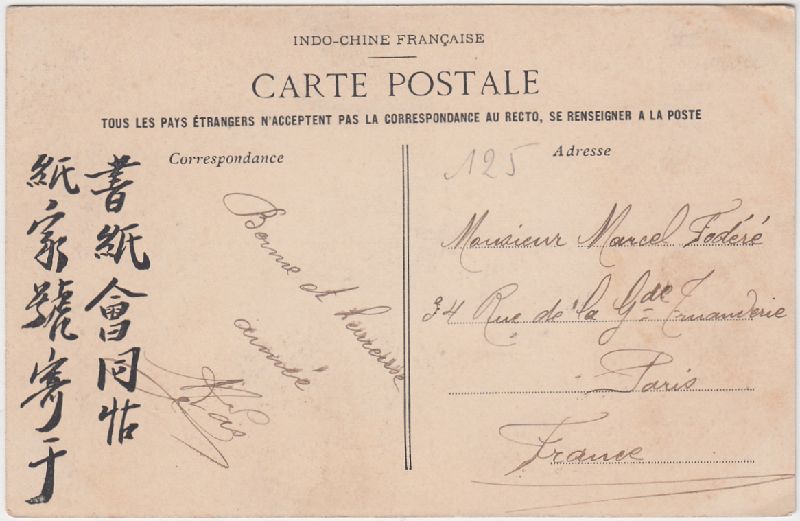 INDO-CHINE FRANÇAISE
CARTE POSTALE
TOUS LES PAYS ÉTRANGERS N'ACCEPTENT PAS LA CORRESPONDANCE AU RECTO, SE RENSEIGNER A LA POSTE
Correspondance
Adresse
125
書紙會同帖
紙家號寄于
Bonne et heureuse
année
Monsieur Marcel Fodéré
34 Rue de la Gde Truanderie
Paris
France